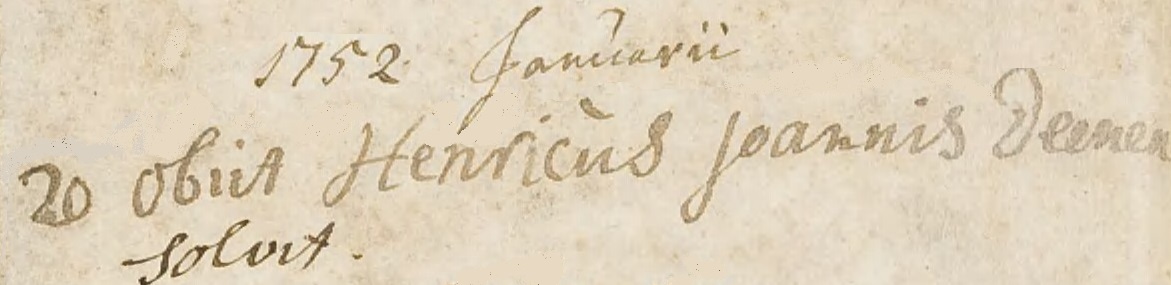 1752 Januarii
20 obiit Henricus Joannis Deenen
solvit.